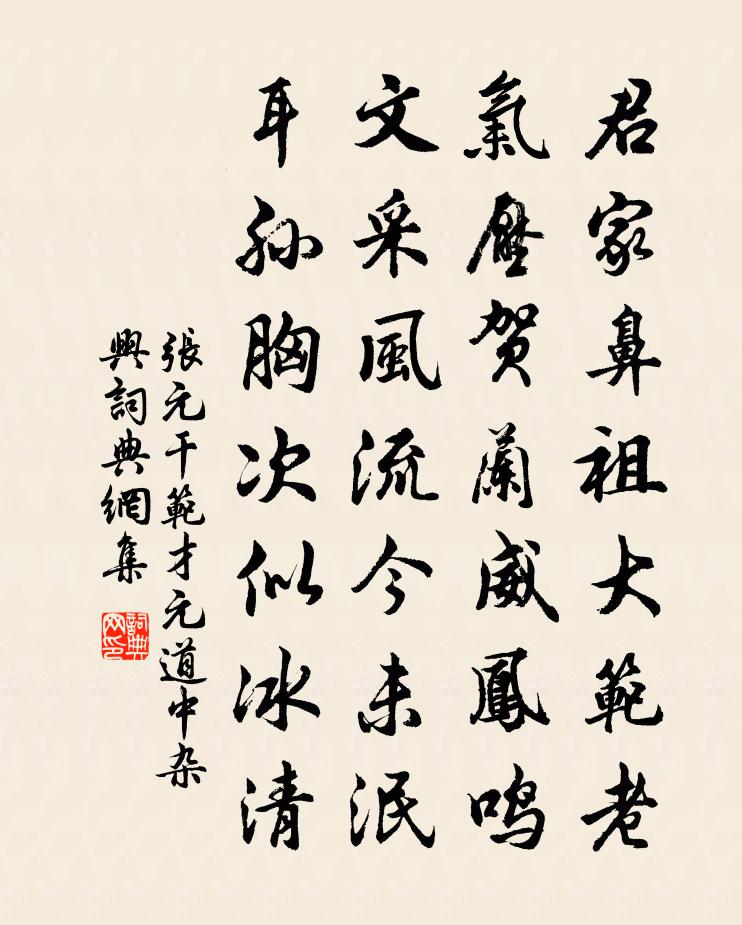 君家鼻祖大範老
氣壓賀蘭威鳳鳴
文采風流今未泯
耳孫胸次似冰清
張元干範才元道中杂
興詞典網集
詞典
网印